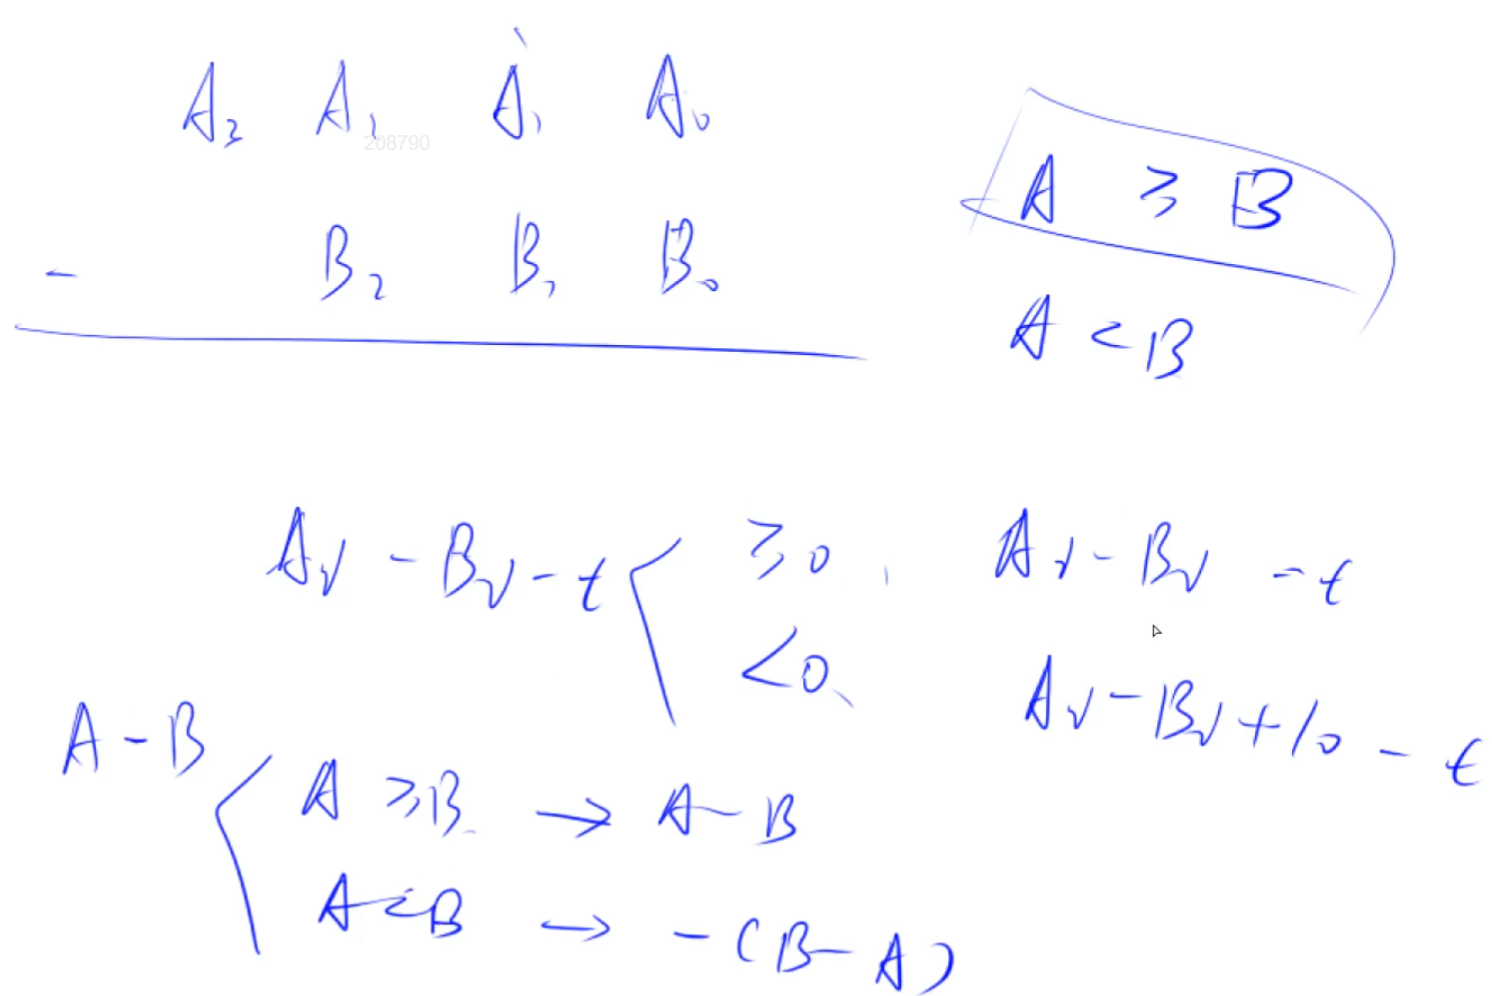 A₃ A₂ A₁ A₀
208790
- B₂ B₁ B₀
A ≥ B
A < B
Aᵢ - Bᵢ - t ≥0, Aᵢ - Bᵢ - t
<0, Aᵢ - Bᵢ + 10 - t
A - B
A ≥ B → A - B
A < B → - (B - A)